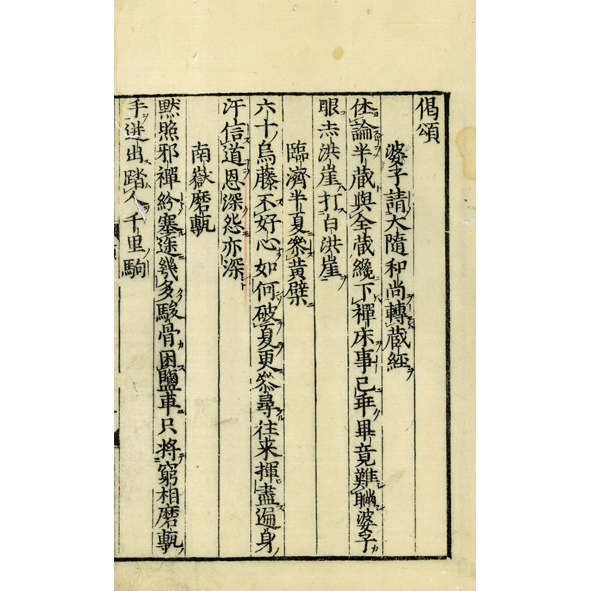 偈頌
婆子請大隨和尚轉藏經
休論半藏與全藏纔下禪床事已乖畢竟難瞞婆子
眼赤洪崖打白洪崖
臨濟半夏叅黃檗
六十烏藤不好心如何破夏更叅尋往来揮盡遍身
汗信道恩深怨亦深
南嶽磨甎
默照邪禪紛塞途幾多駿骨困鹽車只將窮相磨甎
手迸出踏人千里駒